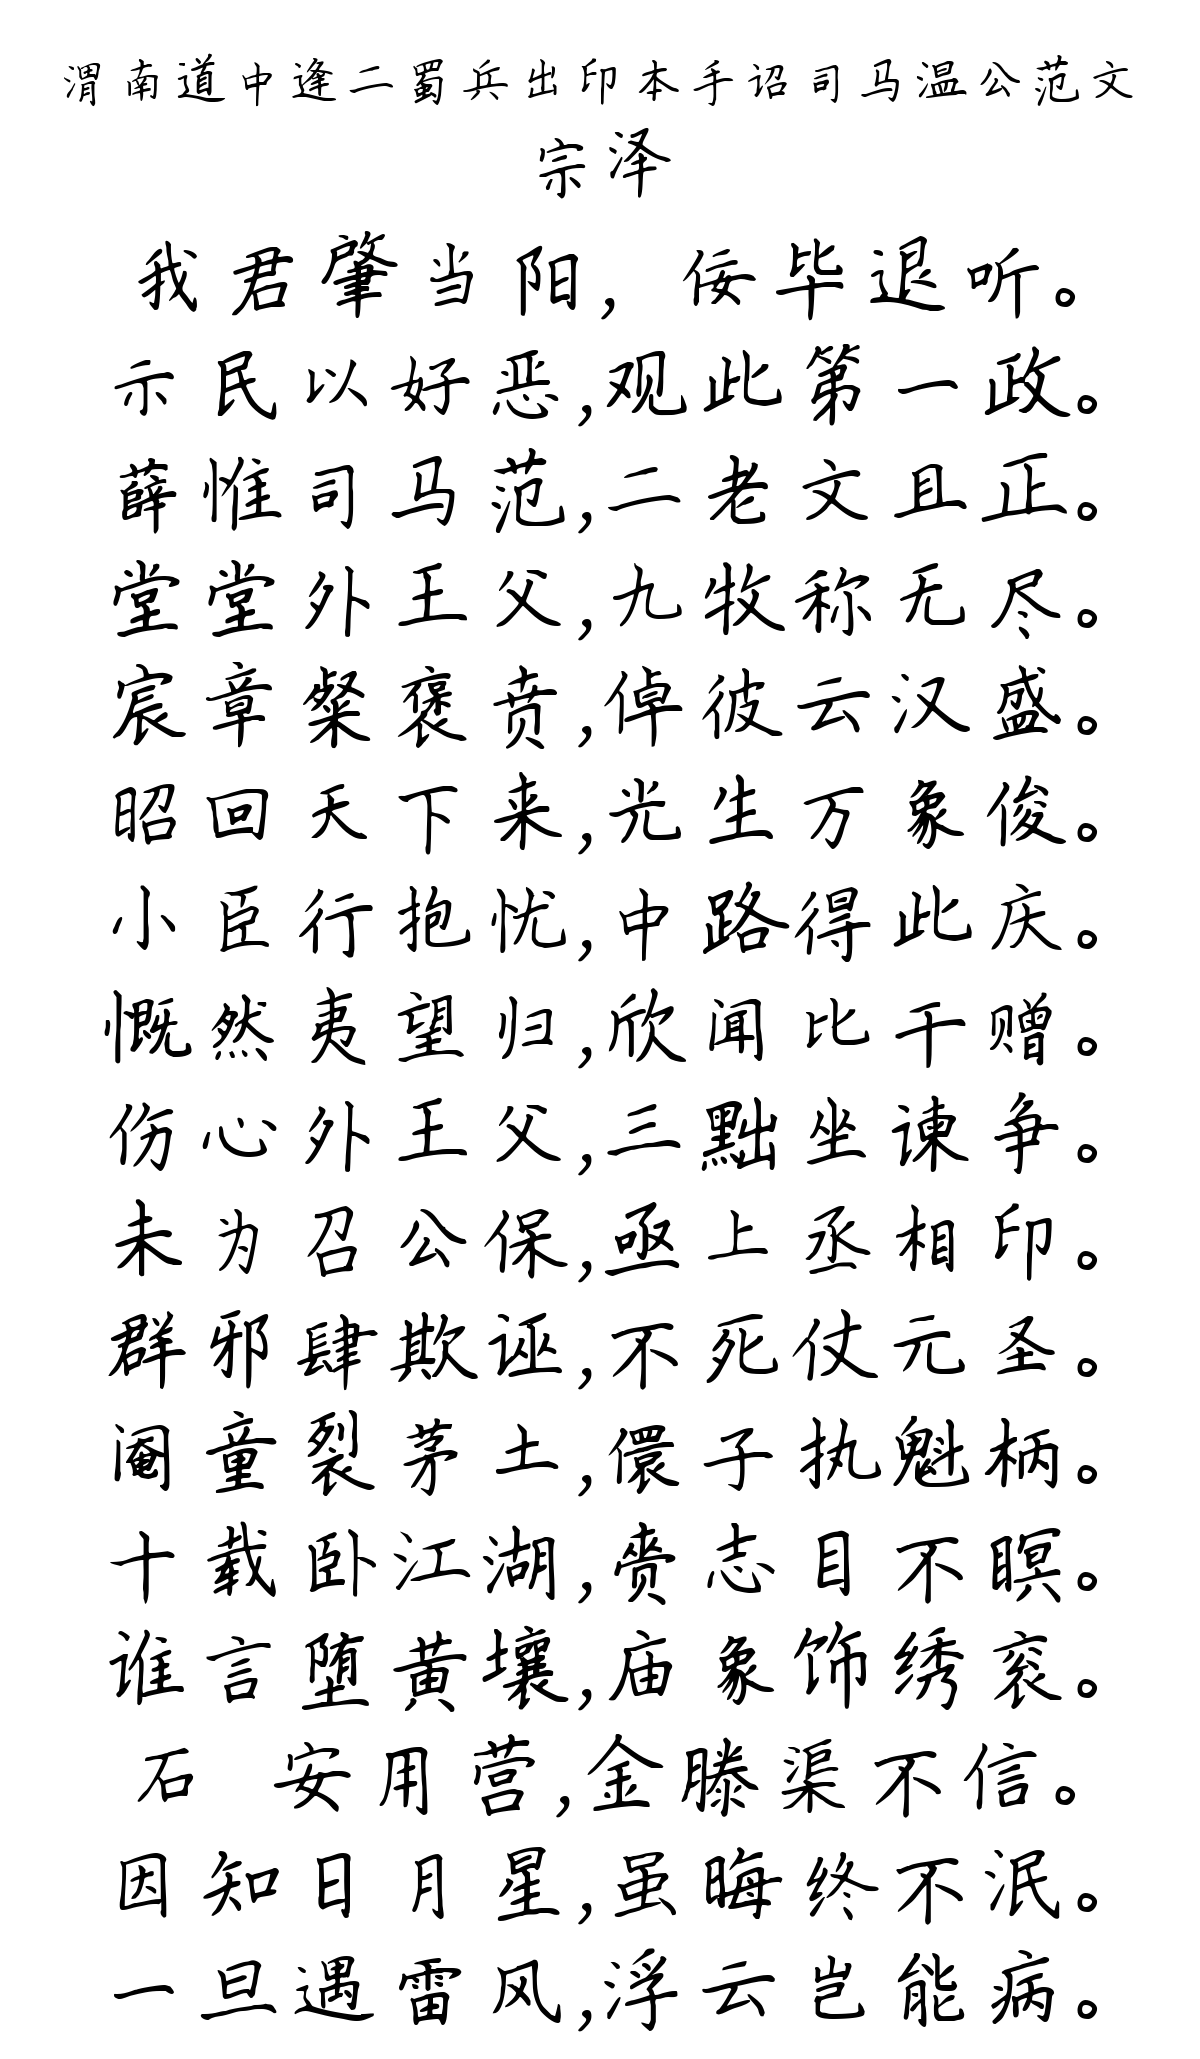 渭南道中逢二蜀兵出印本手诏司马温公范文
宗泽
我君肇当阳，佞毕退听。
示民以好恶，观此第一政。
薛惟司马范，二老文且正。
堂堂外王父，九牧称无尽。
宸章粲褒贲，倬彼云汉盛。
昭回天下来，光生万象俊。
小臣行抱忧，中路得此庆。
慨然夷望归，欣闻比干赠。
伤心外王父，三黜坐谏争。
未为召公保，亟上丞相印。
群邪肆欺诬，不死仗元圣。
阉童裂茅土，儇子执魁柄。
十载卧江湖，赍志目不瞑。
谁言堕黄壤，庙象饰绣衮。
石 安用营，金滕渠不信。
因知日月星，虽晦终不泯。
一旦遇雷风，浮云岂能病。